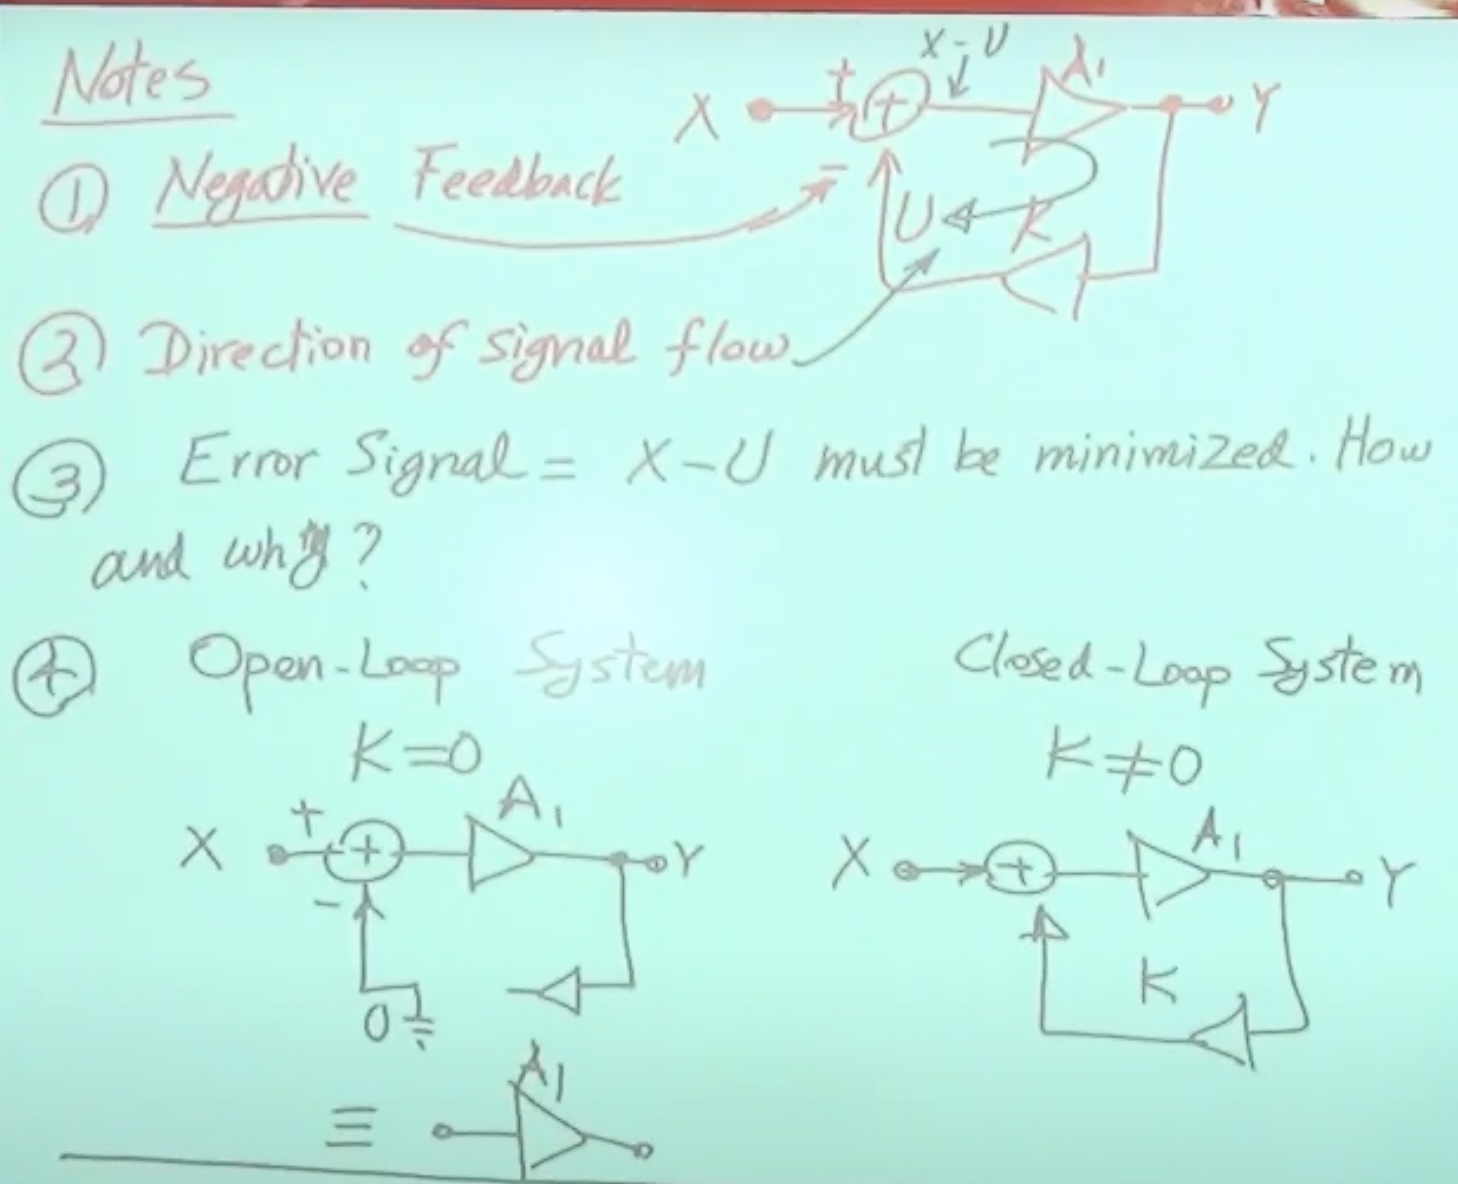 Notes
X - U
A1
X + + Y
① Negative Feedback
-
U K
② Direction of signal flow
③ Error Signal = X-U must be minimized. How
and why?
④ Open-Loop System Closed-Loop System
K=0 K≠0
A1 A1
X + + Y X + Y
-
K
0
A1
≡